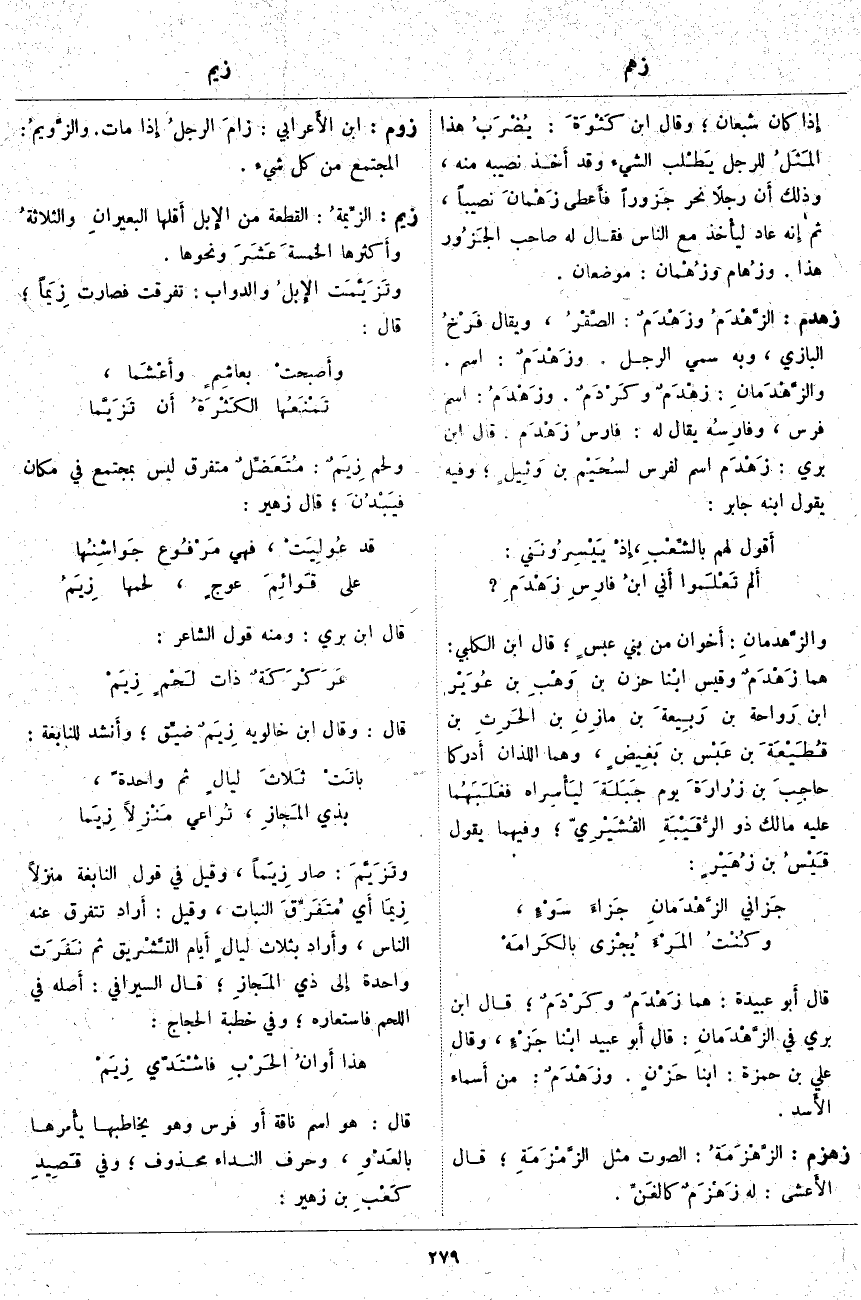 زهم
زيم
إذا كان شبعان ؛ وقال ابن كَثْوَةَ : يُضْرَبُ هذا
المَثَلُ للرجل يَطْلب الشيء وقد أَخذ نصيبه منه ،
وذلك أن رجلًا نحر جَزوراً فأعطى زَهْمانَ نصيباً ،
ثم إنه عاد ليأخذ مع الناس فقال له صاحب الجَزُور
هذا . وزُهام وزُهْمان : موضعان .
زهدم : الزَّهْدَمُ وزَهْدَمٌ : الصَّقْرُ ، ويقال فَرْخُ
البازي ، وبه سمي الرجل . وزَهْدَمٌ : اسم .
والزَّهْدَمانِ : زَهْدَمٌ وكَرْدَمٌ . وزَهْدَمُ : اسم
فرس ، وفارسُه يقال له : فارسُ زَهْدَم . قال ابن
بري : زَهْدَم اسم لفرس لسُحَيْم بن وَثِيلٍ ؛ وفيه
يقول ابنه جابر :
أَقول لهم بالشَّعْبِ، إذْ يَيْسِرُونَني :
أَلم تَعْلَموا أني ابنُ فارِسِ زَهْدَمِ ؟
والزَّهدمانِ : أخوان من بني عبسٍ ؛ قال ابن الكلبي :
هما زَهْدَمٌ وقيس ابْنا حزن بن وَهْبِ بن عُوَيْر
ابن رَواحة بن رَبِيعةَ بن مازِنِ بن الحَرِثِ بن
قُطَيْعَةَ بن عَبْس بن بَغِيضٍ ، وهما اللذان أدركا
حاجِبَ بن زُرارَةَ يوم جَبَلَةَ ليَأْسِراه فغَلَبَهُما
عليه مالك ذو الرُّقَيْبَةِ القُشَيْرِيّ ؛ وفيهما يقول
قَيْسُ بن زُهَيْرٍ :
جَزاني الزَّهْدَمانِ جَزاءَ سَوْءٍ ،
وكُنْتُ المَرْءَ يُجْزى بالكَرامَهْ
قال أبو عبيدة : هما زَهْدَمٌ وكَرْدَمٌ ؛ قال ابن
بري في الزَّهْدَمانِ : قال أبو عبيد ابْنا جَزْءٍ ، وقال
علي بن حمزة : ابنا حَزْنٍ . وزَهْدَمٌ : من أسماء
الأسد .
زهزم : الزَّهْزَمَةُ : الصوت مثل الزَّمْزَمَةِ ؛ قال
الأعشى : له زَهْزَمٌ كالغَنِّ .
زوم : ابن الأَعرابي : زامَ الرجلُ إذا مات . والزَّويمُ :
المجتمع من كل شيء .
زيم : الزِّيمةُ : القطعة من الإبل أقلها البعيرانِ والثلاثةُ
وأكثرها الخمسةَ عَشَرَ ونحوها .
وتَزَيَّمَت الإبلُ والدواب : تفرقت فصارت زِيَماً ؛
قال :
وأَصبحتْ بعاشِمٍ وأَعْشَما ،
تَمْنَعُها الكَثْرَةُ أن تَزَيَّما
ولحم زِيَمٌ : مُتَعَضِّلٌ متفرق ليس بمجتمع في مكان
فيَبْدُنَ ؛ قال زهير :
قد عُولِيَتْ ، فهي مَرْفُوع جَواشِنُها
على قَوائِمَ عوجٍ ، لحمها زِيَمُ
قال ابن بري : ومنه قول الشاعر :
عَرَكْرَكَةٌ ذات لَحْمٍ زِيَمْ
قال : وقال ابن خالويه زِيَمٌ ضيّق ؛ وأنشد للنابغة :
باتَتْ ثلاثَ ليالٍ ثم واحدةً ،
بذي المَجازِ ، تُراعي مَنْزِلاً زِيَما
وتَزَيَّمَ : صار زِيَماً ، وقيل في قول النابغة منزلاً
زِيَما أي مُتَفَرِّقَ النبات ، وقيل : أراد تتفرق عنه
الناس ، وأراد بثلاث ليالٍ أيام التَّشْريق ثم نَفَرَت
واحدة إلى ذي المَجازِ ؛ قال السيرافي : أصله في
اللحم فاستعاره ؛ وفي خطبة الحجاج :
هذا أوانُ الحَرْبِ فاشْتَدّي زِيَمْ
قال : هو اسم ناقة أو فرس وهو يخاطبها يأمرها
بالعَدْوِ ، وحرف النداء محذوف ؛ وفي قَصِيدِ
كَعْبِ بن زهير :
٢٧٩